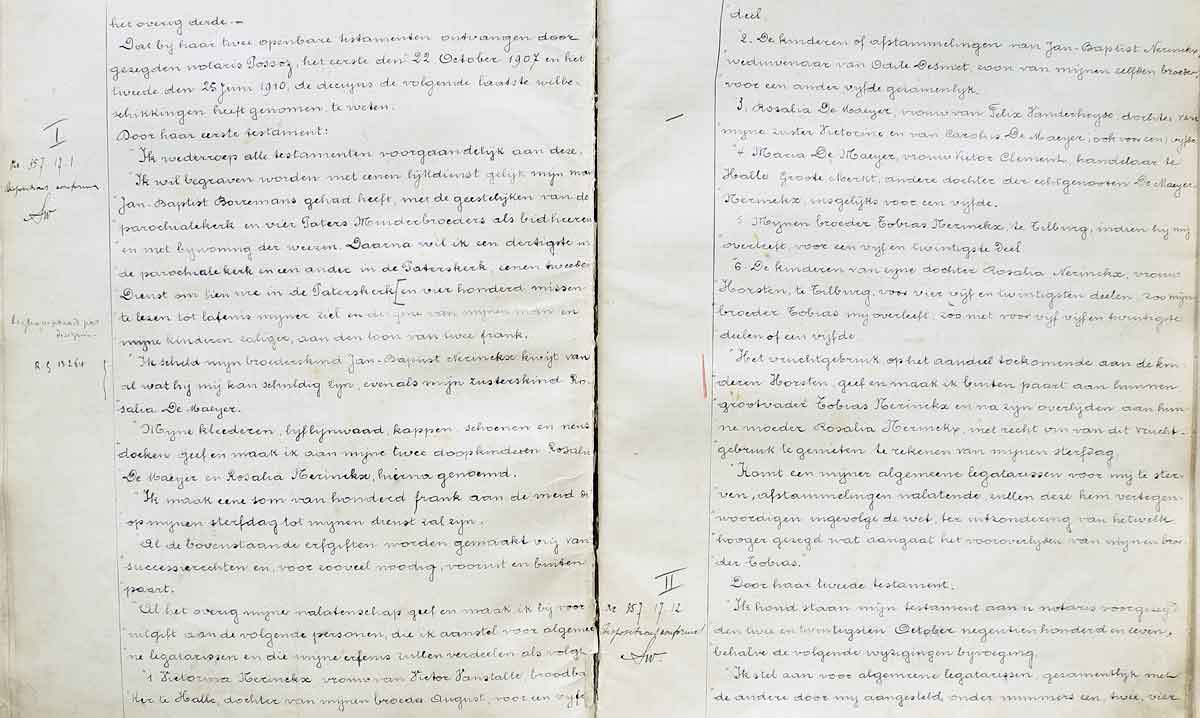 het overig derde.—
Dat bij haar twee openbare testamenten ontvangen door
gezegden notaris Possoz, het eerste den 22 October 1907 en het
tweede den 25 Juni 1910, de decujus de volgende laatste wilbe-
schikkingen heeft genomen, te weten:
Door haar eerste testament:
I
157 17-1
conforme
"Ik wederroep alle testamenten voorgaandelijk aan deze.
"Ik wil begraven worden met eenen lijkdienst gelijk mijn man
"Jan-Baptist Borremans gehad heeft, met de geestelijken van de
"parochialekerk en vier Paters Minderbroeders als bidheeren
"en met bijwoning der weezen. Daarna wil ik een dertigste in
"de parochiale kerk en een ander in de Paterskerk, eenen tweeden
"Dienst om tien ure in de Paterskerk [en vier honderd missen
"te lezen tot lafenis mijner ziel en dezene van mijnen man en
"mijne kinderen zaliger, aan den loon van twee frank.
"Ik scheld mijn broederskind Jan-Baptist Nerinckx kwijt van
"al wat hij mij kan schuldig zijn, evenals mijn zusterskind Ro-
"salia De Maeyer.
"Mijne kleederen, lijflijnwaad, kappen, schoenen en neus
"doeken geef en maak ik aan mijne twee doopkinderen Rosalia
"De Maeyer en Rosalia Nerinckx, hierna genoemd.
"Ik maak eene som van honderd frank aan de meid die
"op mijnen sterfdag tot mijnen dienst zal zijn.
"Al de bovenstaande erfgiften worden gemaakt vrij van
"successierechten en, voor zooveel noodig, vooruit en buiten
"paart.
"Al het overig mijner nalatenschap geef en maak ik bij voor
"uitgift aan de volgende personen, die ik aanstel voor algemee
"ne legatarissen en die mijne erfenis zullen verdeelen als volgt
"1 Victorina Nerinckx vrouw van Victor Vanstalle broodba
"kker te Halle, dochter van mijnen broeder August, voor een vijfde
deel.
"2. De kinderen of afstammelingen van Jan-Baptist Nerinckx
"weduwenaar van Odile Desmet, zoon van mijnen zelfden broeder
"voor een ander vijfde gezamenlijk.
"3. Rosalia De Maeyer, vrouw van Felix Vanderheyde, dochter van
"mijne zuster Victorine en van Carolus De Maeyer, ook voor een vijfde
"4. Maria De Maeyer, vrouw Victor Clement, handelaar te
"Halle Groote Merkt, andere dochter der echtgenooten De Maeyer
"Nerinckx, insgelijks voor een vijfde.
"Mijnen broeder Tobias Nerinckx, te Tilburg, indien hij mij
"overleeft, voor een vijf en twintigste deel
"6. De kinderen van zijne dochter Rosalia Nerinckx, vrouw
"Horsten, te Tilburg, voor vier vijf en twintigsten deelen, zoo mijn
"broeder Tobias mij overleeft, zoo niet voor vijf vijf en twintigste
"deelen of een vijfde.
"Het vruchtgebruik op het aandeel toekomende aan de kin-
"deren Horsten, geef en maak ik buiten paart aan hunnen
"grootvader Tobias Nerinckx en na zijn overlijden aan hun-
"ne moeder Rosalia Nerinckx, met recht om van dit vrucht-
"gebruik te genieten te rekenen van mijnen sterfdag.
"Komt een mijner algemeene legatarissen voor mij te ster-
"ven, afstammelingen nalatende, zullen deze hem vertegen-
"woordigen ingevolge de wet, ter uitzondering van hetwelk
"hooger gezegd wat aangaat het vooroverlijden van mijnen broe-
"der Tobias."
Door haar tweede testament.
II
157 17-12
conforme
"Ik houd staan mijn testament aan u notaris voorgezegd
"den twee en twintigsten October negentien honderd en zeven,
"behalve de volgende wijzigingen bijvoeging.
"Ik stel aan voor algemeene legatarissen, gezamentlijk met
"de andere door mij aangesteld onder nummers een, twee, vier